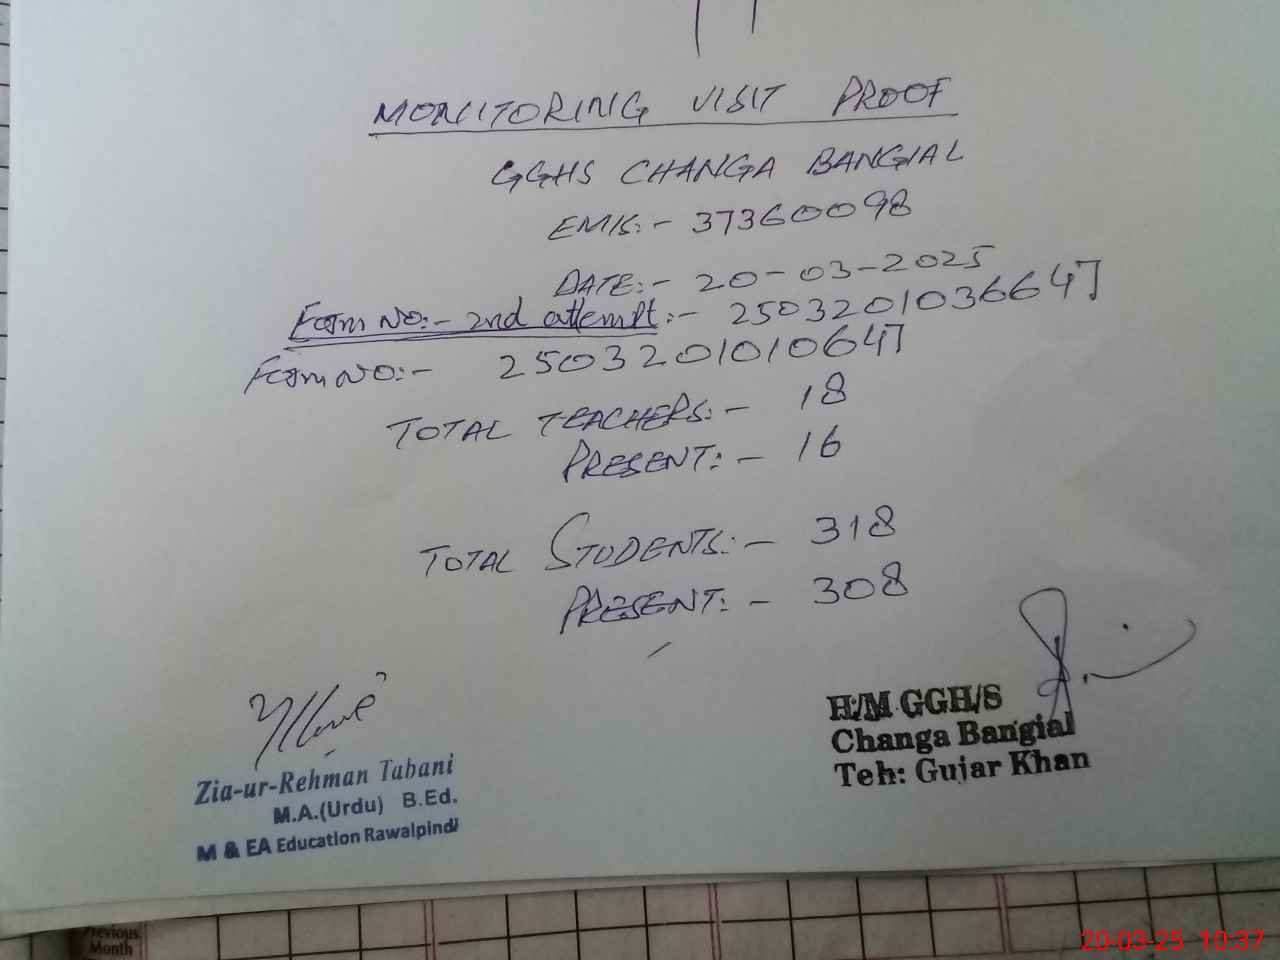 MONITORING VISIT PROOF
GGHS CHANGA BANGIAL
EMIS:- 37360098
DATE:- 20-03-2025
Form NO:- 2nd attempt:- 2503201036647
Form NO:- 2503201010647
TOTAL TEACHERS:- 18
PRESENT:- 16
TOTAL STUDENTS:- 318
PRESENT:- 308
Zia-ur-Rehman Tabani
M.A.(Urdu) B.Ed.
M & EA Education Rawalpindi
H/M GGH/S
Changa Bangial
Teh: Gujar Khan
Previous
Month
20-03-25 10:37